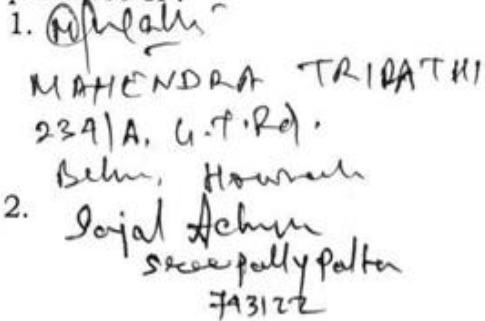 1.
MAHENDRA TRIPATHI
239/A, G.T.Rd.
Howrah
2. Sajal
Sreepally Palta
743122